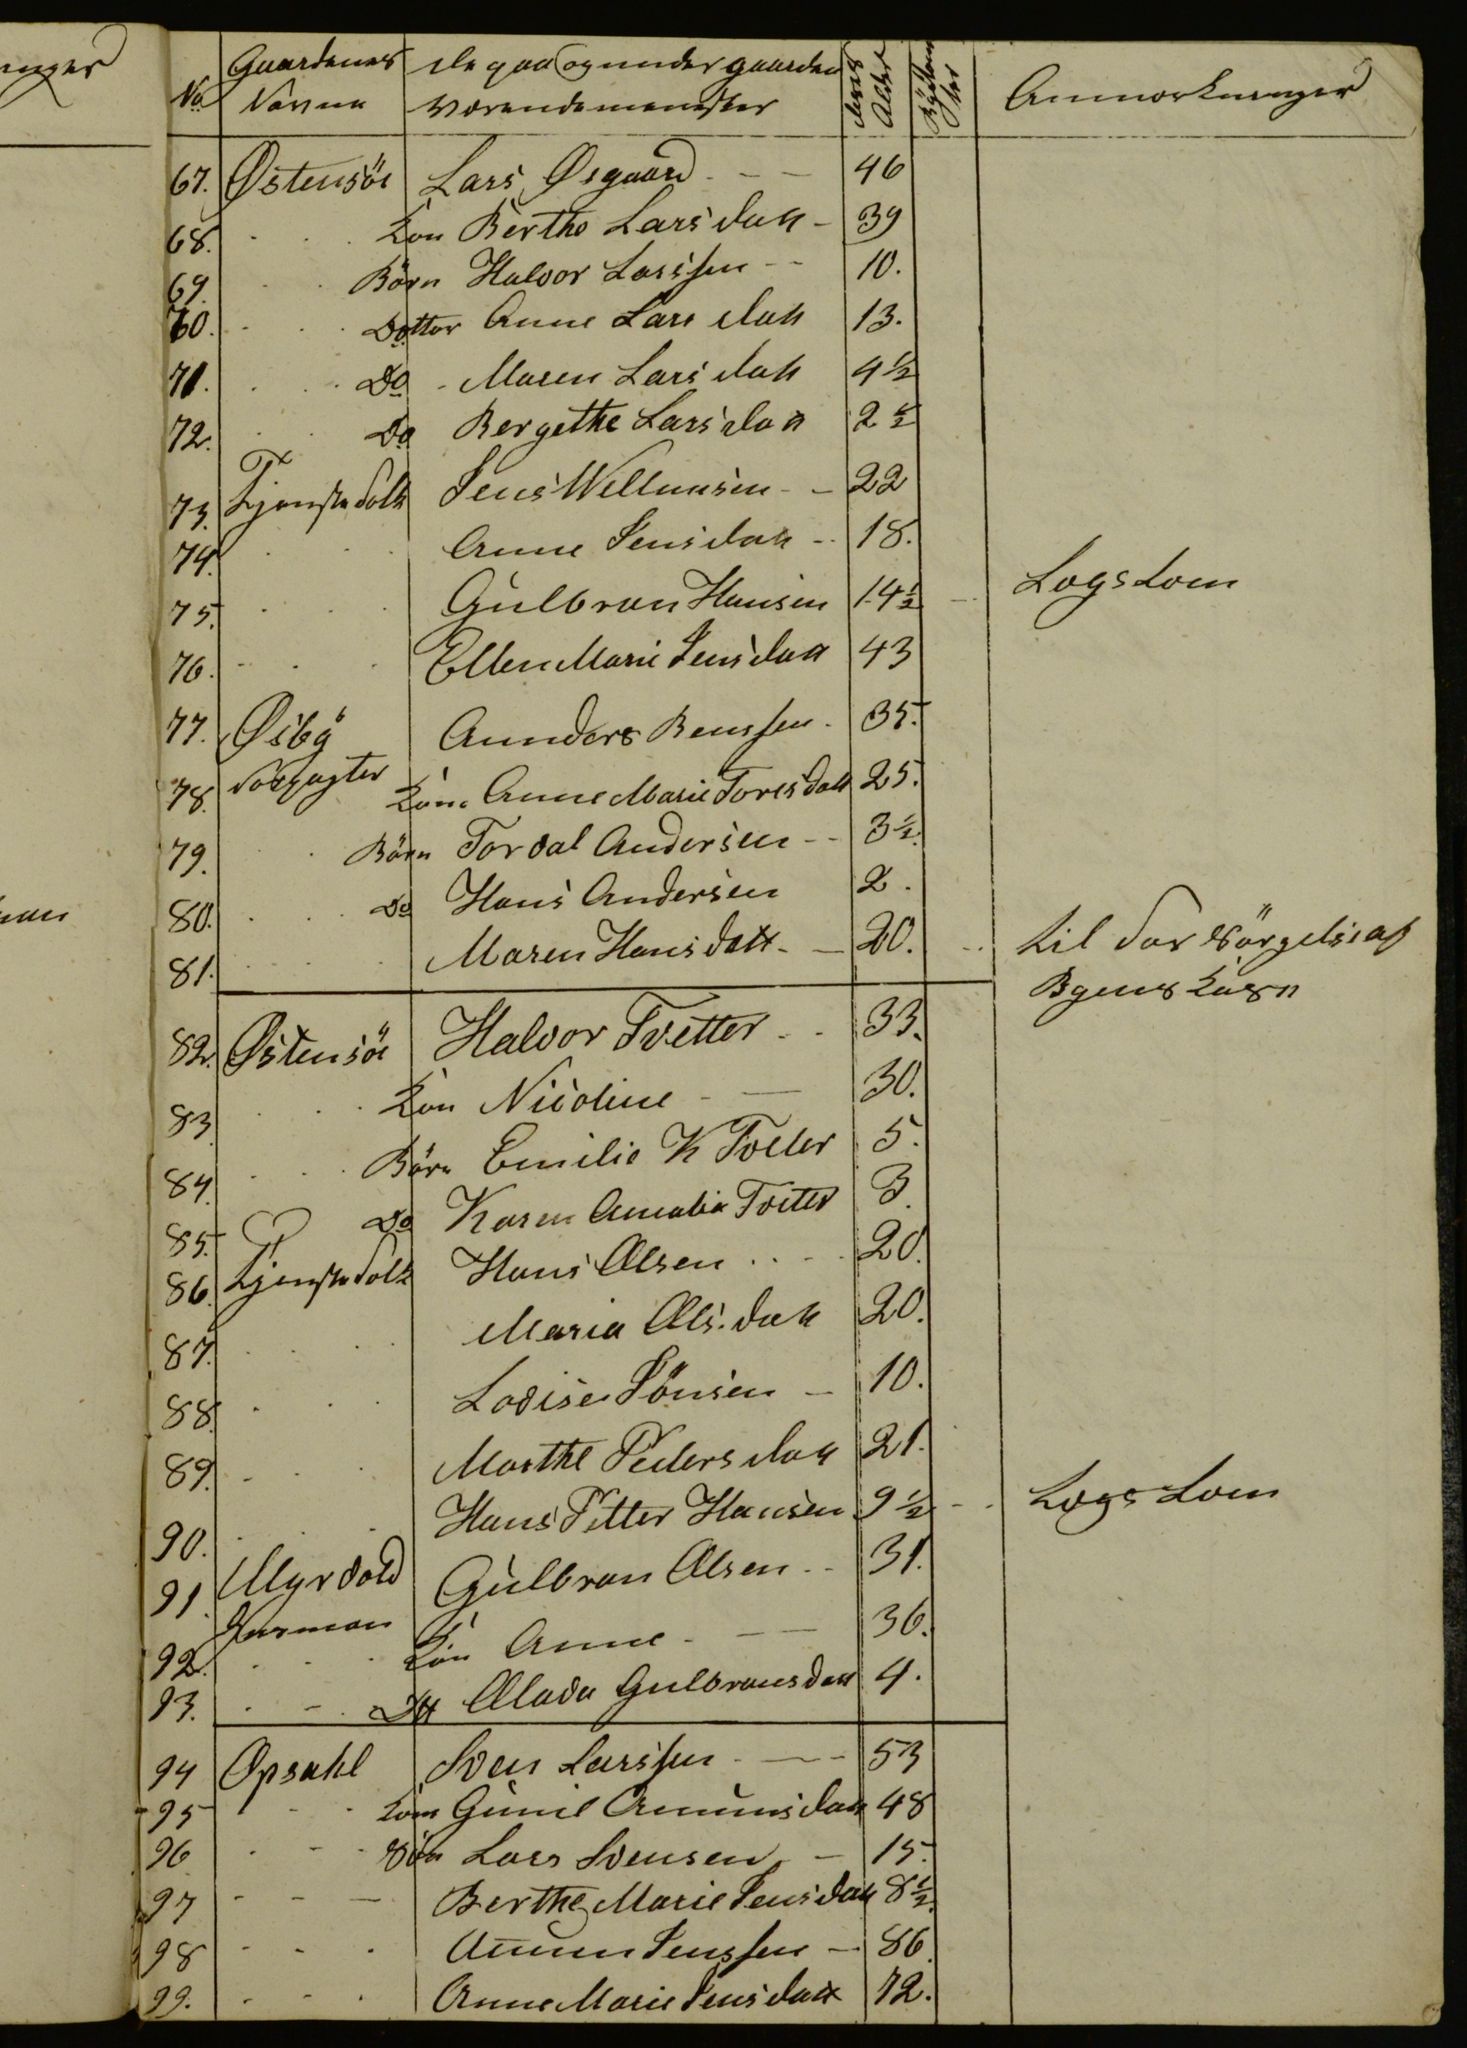 No Gaardenes Navne de paa og under gaarden værendemenesker deres Alder Anmærkninger
67. Østensöe Lars Øegaard - - 46
68. . . . Kon Berthe Lars datt - 39
69. . . Börn Halvor Larssen - - 10.
70. . . . Dotter Anne Lars datt 13.
71. . . . Do - Maren Lars datt 4 1/2
72. . . Do Bergethe Lars datt 2 1/2
73. Tjenstefolk Jens Wellumsen - - 22
74. . . . Anne Jens datt - - 18.
75. . . . Gulbran Hansen 14 1/2 - Lægslem
76. - . . Ellen Marie Jens datt 43
77. Øsbÿ Annders Benssen - 35.
78. Forpagter Kone Anne Marie Tores datt 25.
79. . . Börn Torval Andersen - - 3 1/2
80. . . . Do Hans Andersen 2.
81. . . . . Maren Hans datt - - 20. - - til forsörgelse af
Bgens Kasn
82. Østensöe Halvor Tvetter - . 33.
83 . . . Kon Nicoline - — 30.
84. . . . Börn Emilie K Tveter 5.
85. Do Karen Amalia Tveter 3
86. Tjenstefolk Hans Olsen . . - . 20.
87. . . . . Maria Ols. datt 20.
88. . . . Lovise Jönsen - 10.
89. - . . Marthe Peders datt 21.
90. . . . Hans Petter Hansen 9 1/2 - - Lægs Lem
91. Myrvold Gulbran Olsen - - 31.
Huusman
92. . . . Kon Anne - — 36.
93. . - . Dtt Olava Gulbrans datt 4.
94 Opsahl Sven Larssen - — - 53
95 - . Kone Gunil Amuns datt 48
96 . - . Sön Lars Svensen - 15.
97 - - — Berthe Marie Jens datt 8 1/2
98 . - . Amun Jenssen - 86
99. . . . Anne Marie Jens datt 12.